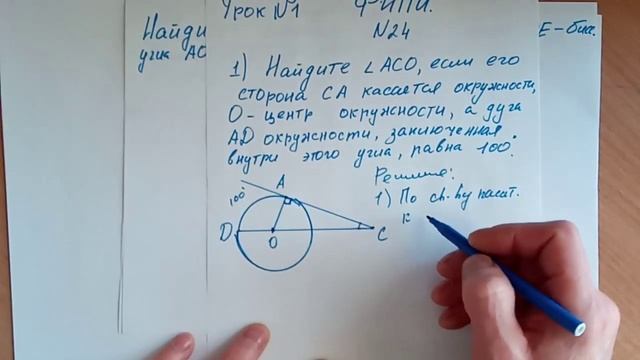 Урок №1 ФИПИ.
№24
Найди
угла АС
Е-бис.
1) Найдите ∠ACO, если его
сторона CA касается окружности,
O - центр окружности, а дуга
AD окружности, заключенная
внутри этого угла, равна 100°.
Решение:
1) По св-ву касат.
к
100°
A
D
O
C